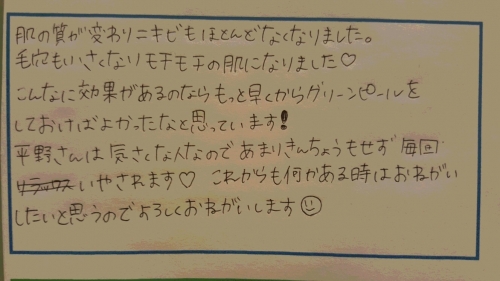 肌の質が変わりニキビもほとんどなくなりました。
毛穴もいさくなりモチモチの肌になりました♡
こんなに効果があるのならもっと早くからグリーンピールを
しておけばよかったなと思っています!
平野さんは気さくな人なのであまりきんちょうもせず毎回
リラックスいやされます♡ これからも何かある時はおねがい
したいと思うのでよろしくおねがいします☺